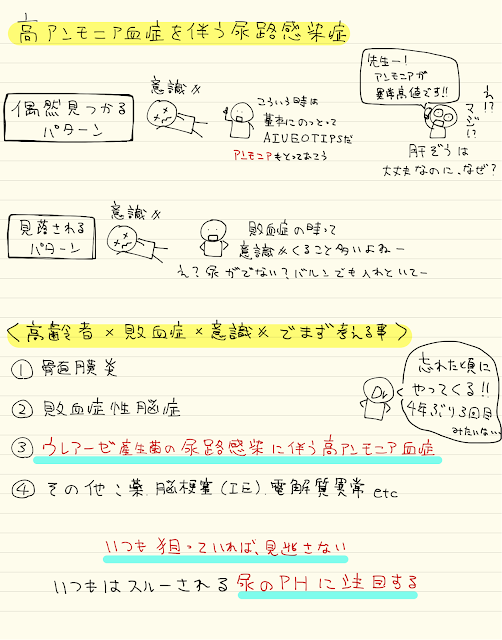 高アンモニア血症を伴う尿路感染症
偶然見つかる
パターン
意識※
こういう時は
基本にのっとって
AIUEOTIPSだ
アンモニアもとっておこう
先生ー!
アンモニアが
異常高値です!!
え!?
マジ!?
肝ぞうは
大丈夫なのに、なぜ?
見落される
パターン
意識※
敗血症の時って
意識※くること多いよねー
え?尿がでない?バルンでも入れといてー
<高齢者×敗血症×意識※でまず考える事>
① 骨直膜炎
② 敗血症性脳症
③ ウレアーゼ産生菌の尿路感染に伴う高アンモニア血症
④ その他:薬.脳梗塞(IE).電解質異常 etc
Dr
忘れた頃に
やってくる!!
4年ぶり3回目
みたいな
いつも狙っていれば、見逃さない
いつもはスルーされる尿のPHに注目する